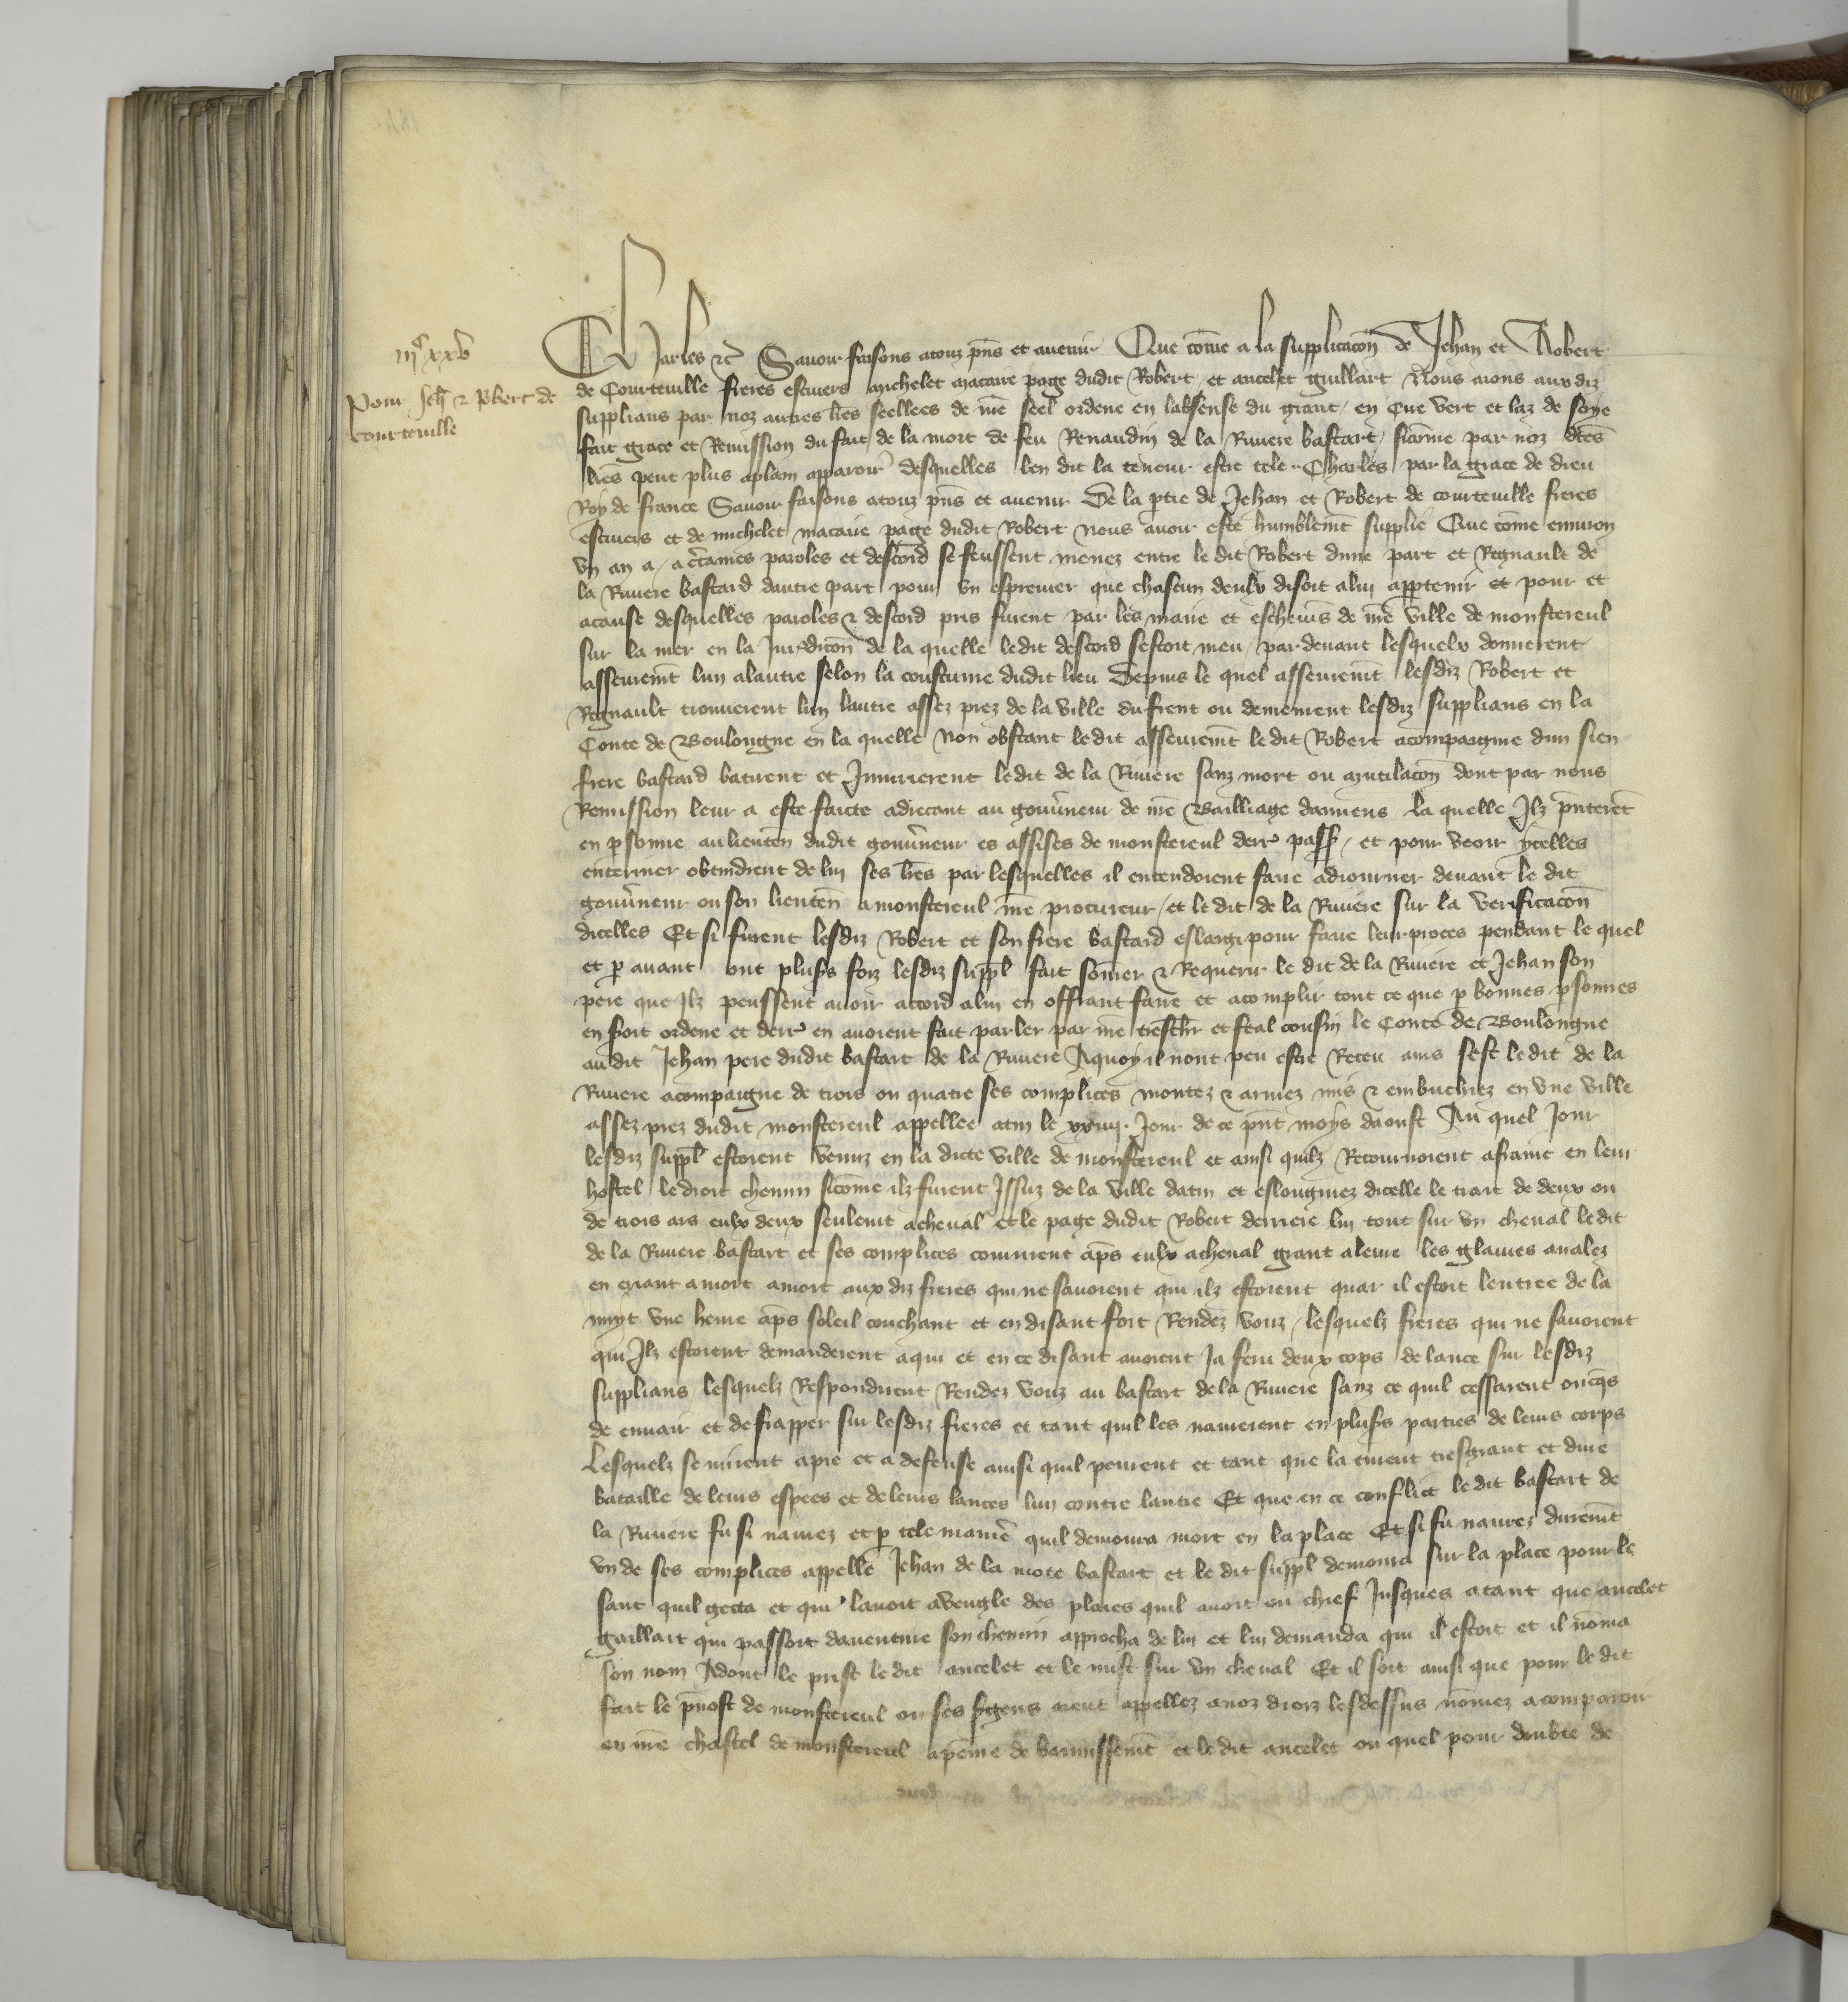 iijᶜ xxv
Pour Jeh̄ ⁊ Robert de
courteuille
Charles ⁊c̄ Sauoir faisons atouz pn̄s et auenir Que cōme a la supplicacōn de Jehan et Robert
de Courteuille freres escuiers michelet macaire page dudit Robert et ancelet guillart Nous aions aux diz
supplians par noz autres lr̄es seellees de nr̄e seel ordene en labsense du grant / en cire vert et laz de soye
fait grace et Remission du fait de la mort de feu Renaudin de la Riuiere bastart / sicōme par noz dc̄es
lr̄es peut plus aplain apparoir desquelles len dit la teneur estre tele Charles par la grace de dieu
Roy de france Sauoir faisons atouz pn̄s et auenir De la p̄tie de Jehan et Robert de courteuille freres
escuiers et de michelet macaire page dudit Robert nous auoir este humblem̄t supplie Que cōme enuiron
vn an a / a c̄taines paroles et descord se feussent menez entre le dit Robert dune part et Regnault de
la Riuiere bastard dautre part pour vn espreuier que chascun deulx disoit alui app̄tenir et pour et
acause desquelles paroles ⁊ descord pris furent par les maire et escheuins de nr̄e ville de monstereul
sur la mer en la Jur̄dicōn de la quelle ledit descord sestoit meu / par deuant lesquelx donnerent
asseurem̄t lun alautre selon la coustume dudit lieu Depuis le quel asseurem̄t lesdiz Robert et
Regnault trouuerent lun lautre assez prez de la ville dufrent ou demeurent lesdiz supplians en la
Conte de Boulongne en la quelle non obstant ledit asseurem̄t le dit Robert acompaignie dun sien
frere bastard batirent et Iniurierent ledit de la Riuiere sanz mort ou mutilacōn dont par nous
Remission leur a este faicte adrecant au gouūneur de nr̄e Bailliage damiens la quelle Ilz pn̄terēt
en p̄sonne au lieuten̄ dudit gouūneur es assises de monstereul derr̄ pass̄ / et pour veoir ycelles
enteriner obtindrent de lui ses lr̄es par lesquelles il entendoient faire adiourner deuant le dit
gouūneur ou son lieuten̄ a monstereul nr̄e procureur / et le dit de la Riuiere sur la verificacōn
dicelles Et si furent lesdiz Robert et son frere bastard eslargi pour faire leur proces pendant le quel
et p̄ auant ont plus̄s foiz lesdiz suppl̄ fait sōmer ⁊ Requerir le dit de la Riuiere et Jehan son
pere que Ilz peussent auoir accord alui en offrant faire et acomplir tout ce que p̄ bonnes p̄sonnes
en soit ordene et derr̄ en auoient fait parler par nr̄e tresch̄r et feal cousin le Conte de Boulongne
au dit Jehan pere dudit bastart de la Riuiere Aquoy il nont peu estre Receu ains sest le dit de la
Riuiere acompaigne de trois ou quatre ses complices montez ⁊ armez mis ⁊ embuchiez en vne ville
assez prez dudit monstereul appellee atin le xxiiij. Jour de ce pn̄t moys daoust Au quel Jour
lesdiz suppl̄ estoient venuz en la dicte ville de monstereul et ainsi quilz Retournoient afrainc en leur
hostel le droit chemin sicōme ilz furent Issuz de la ville datin et eslongniez dicelle le trait de deux ou
de trois ars eulx deux seulem̄t acheual et le page dudit Robert derriere lui tout sur vn cheual le dit
de la Riuiere bastart et ses complices coururent ap̄s eulx acheual grant aleure les glaiues aualez
en criant amort amort aux diz freres qui ne sauoient qui ilz estoient quar il estoit lentree de la
nuyt vne heure ap̄s soleil couchant et en disant fort Rendez vouz / lesquelz freres qui ne sauoient
qui Ilz estoient demanderent aqui et en ce disant auoient Ja feru deux cops de lance sur lesdiz
supplians lesquelz Respondirent Rendez vouz au bastart de la Riuiere sanz ce quil cessarent oncq̄s
de enuair et de frapper sur lesdiz freres et tant quil les naurerent en plus̄s parties de leurs corps
Lesquelz se mirent apie et a defense ainsi quil peurent et tant que la eurent tresgrant et dure
bataille de leurs espees et de leurs lances lun contre lautre Et que en ce conflict le dit bastart de
la Riuiere fu si naurez et p̄ tele manie̅ quil demoura mort en la place Et si fu naurez durem̄t
vn de ses complices appelle Jehan de la mote bastart et le dit suppl̄ demoura sur la place pour le
sanc quil getta et qui lauoit aveugle des plaies quil auoit ou chief Jusques atant que ancelet
gaillart qui passoit dauenture son chemin approcha de lui et lui demanda qui il estoit et il nōma
son nom Adont le prist le dit ancelet et le mist sur vn cheual Et il soit ainsi que pour le dit
fait le p̄uost de monstereul ou ses s̄gens aient appellez anoz droiz lesdessus nōmez a comparoir
en nr̄e chastel de monstereul apeine de bannissem̄t et le dit ancelet ou quel pour doubte de